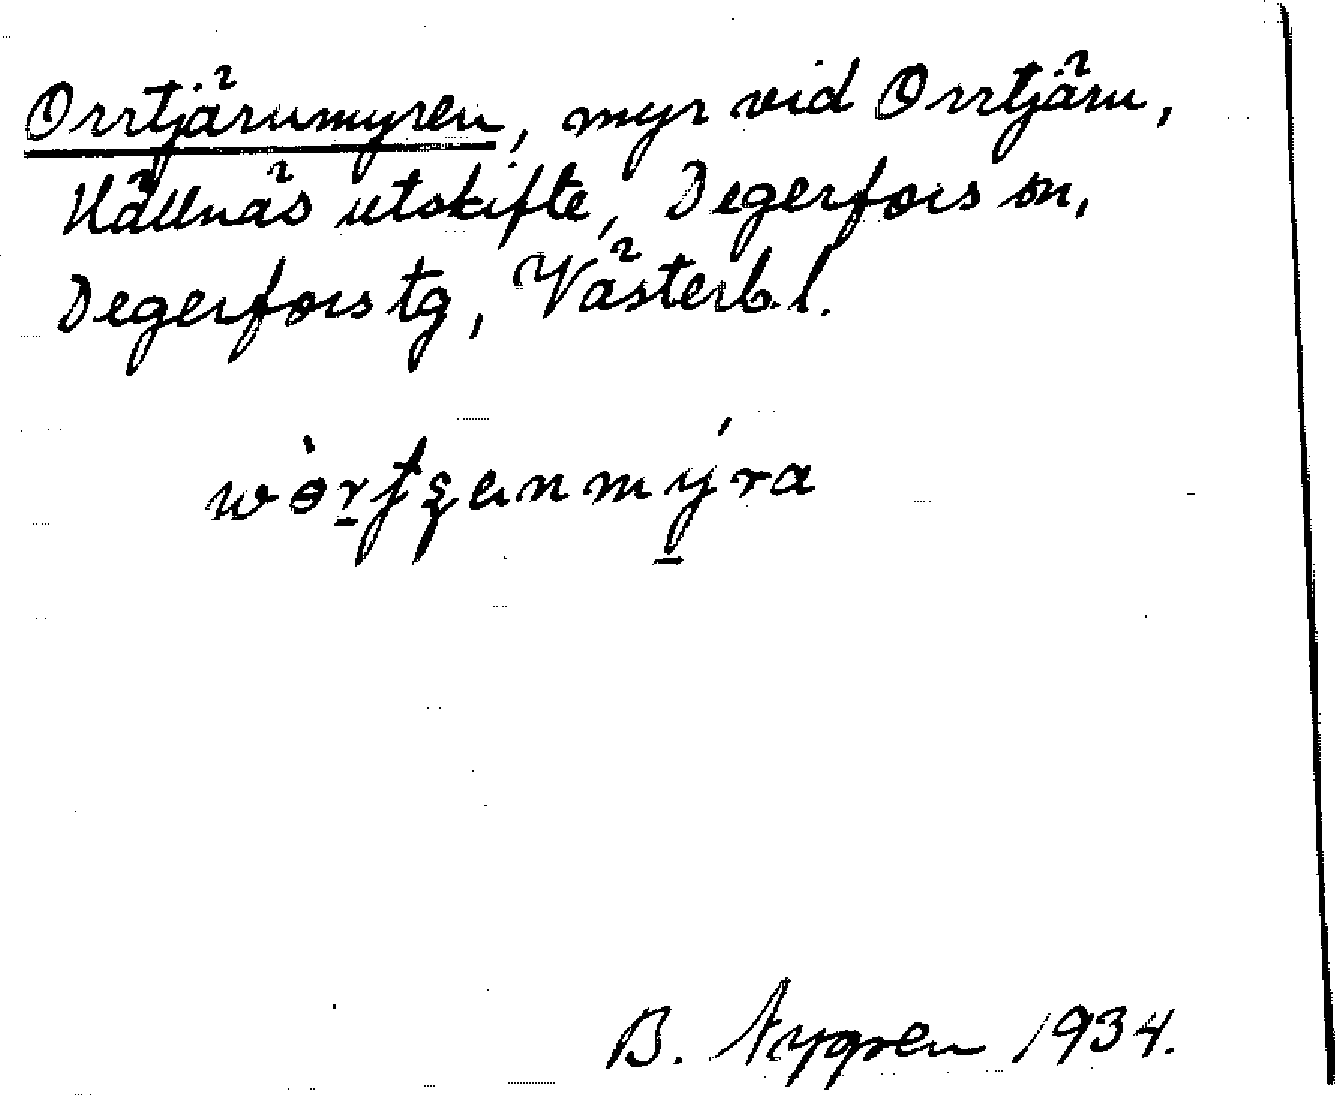 Orrtjärnmyren, myr vid Orrtjärn,
Hällnäs utskifte, Degerfors sn,
Degerfors tg, Västerb. l.
B. Nygren 1934.